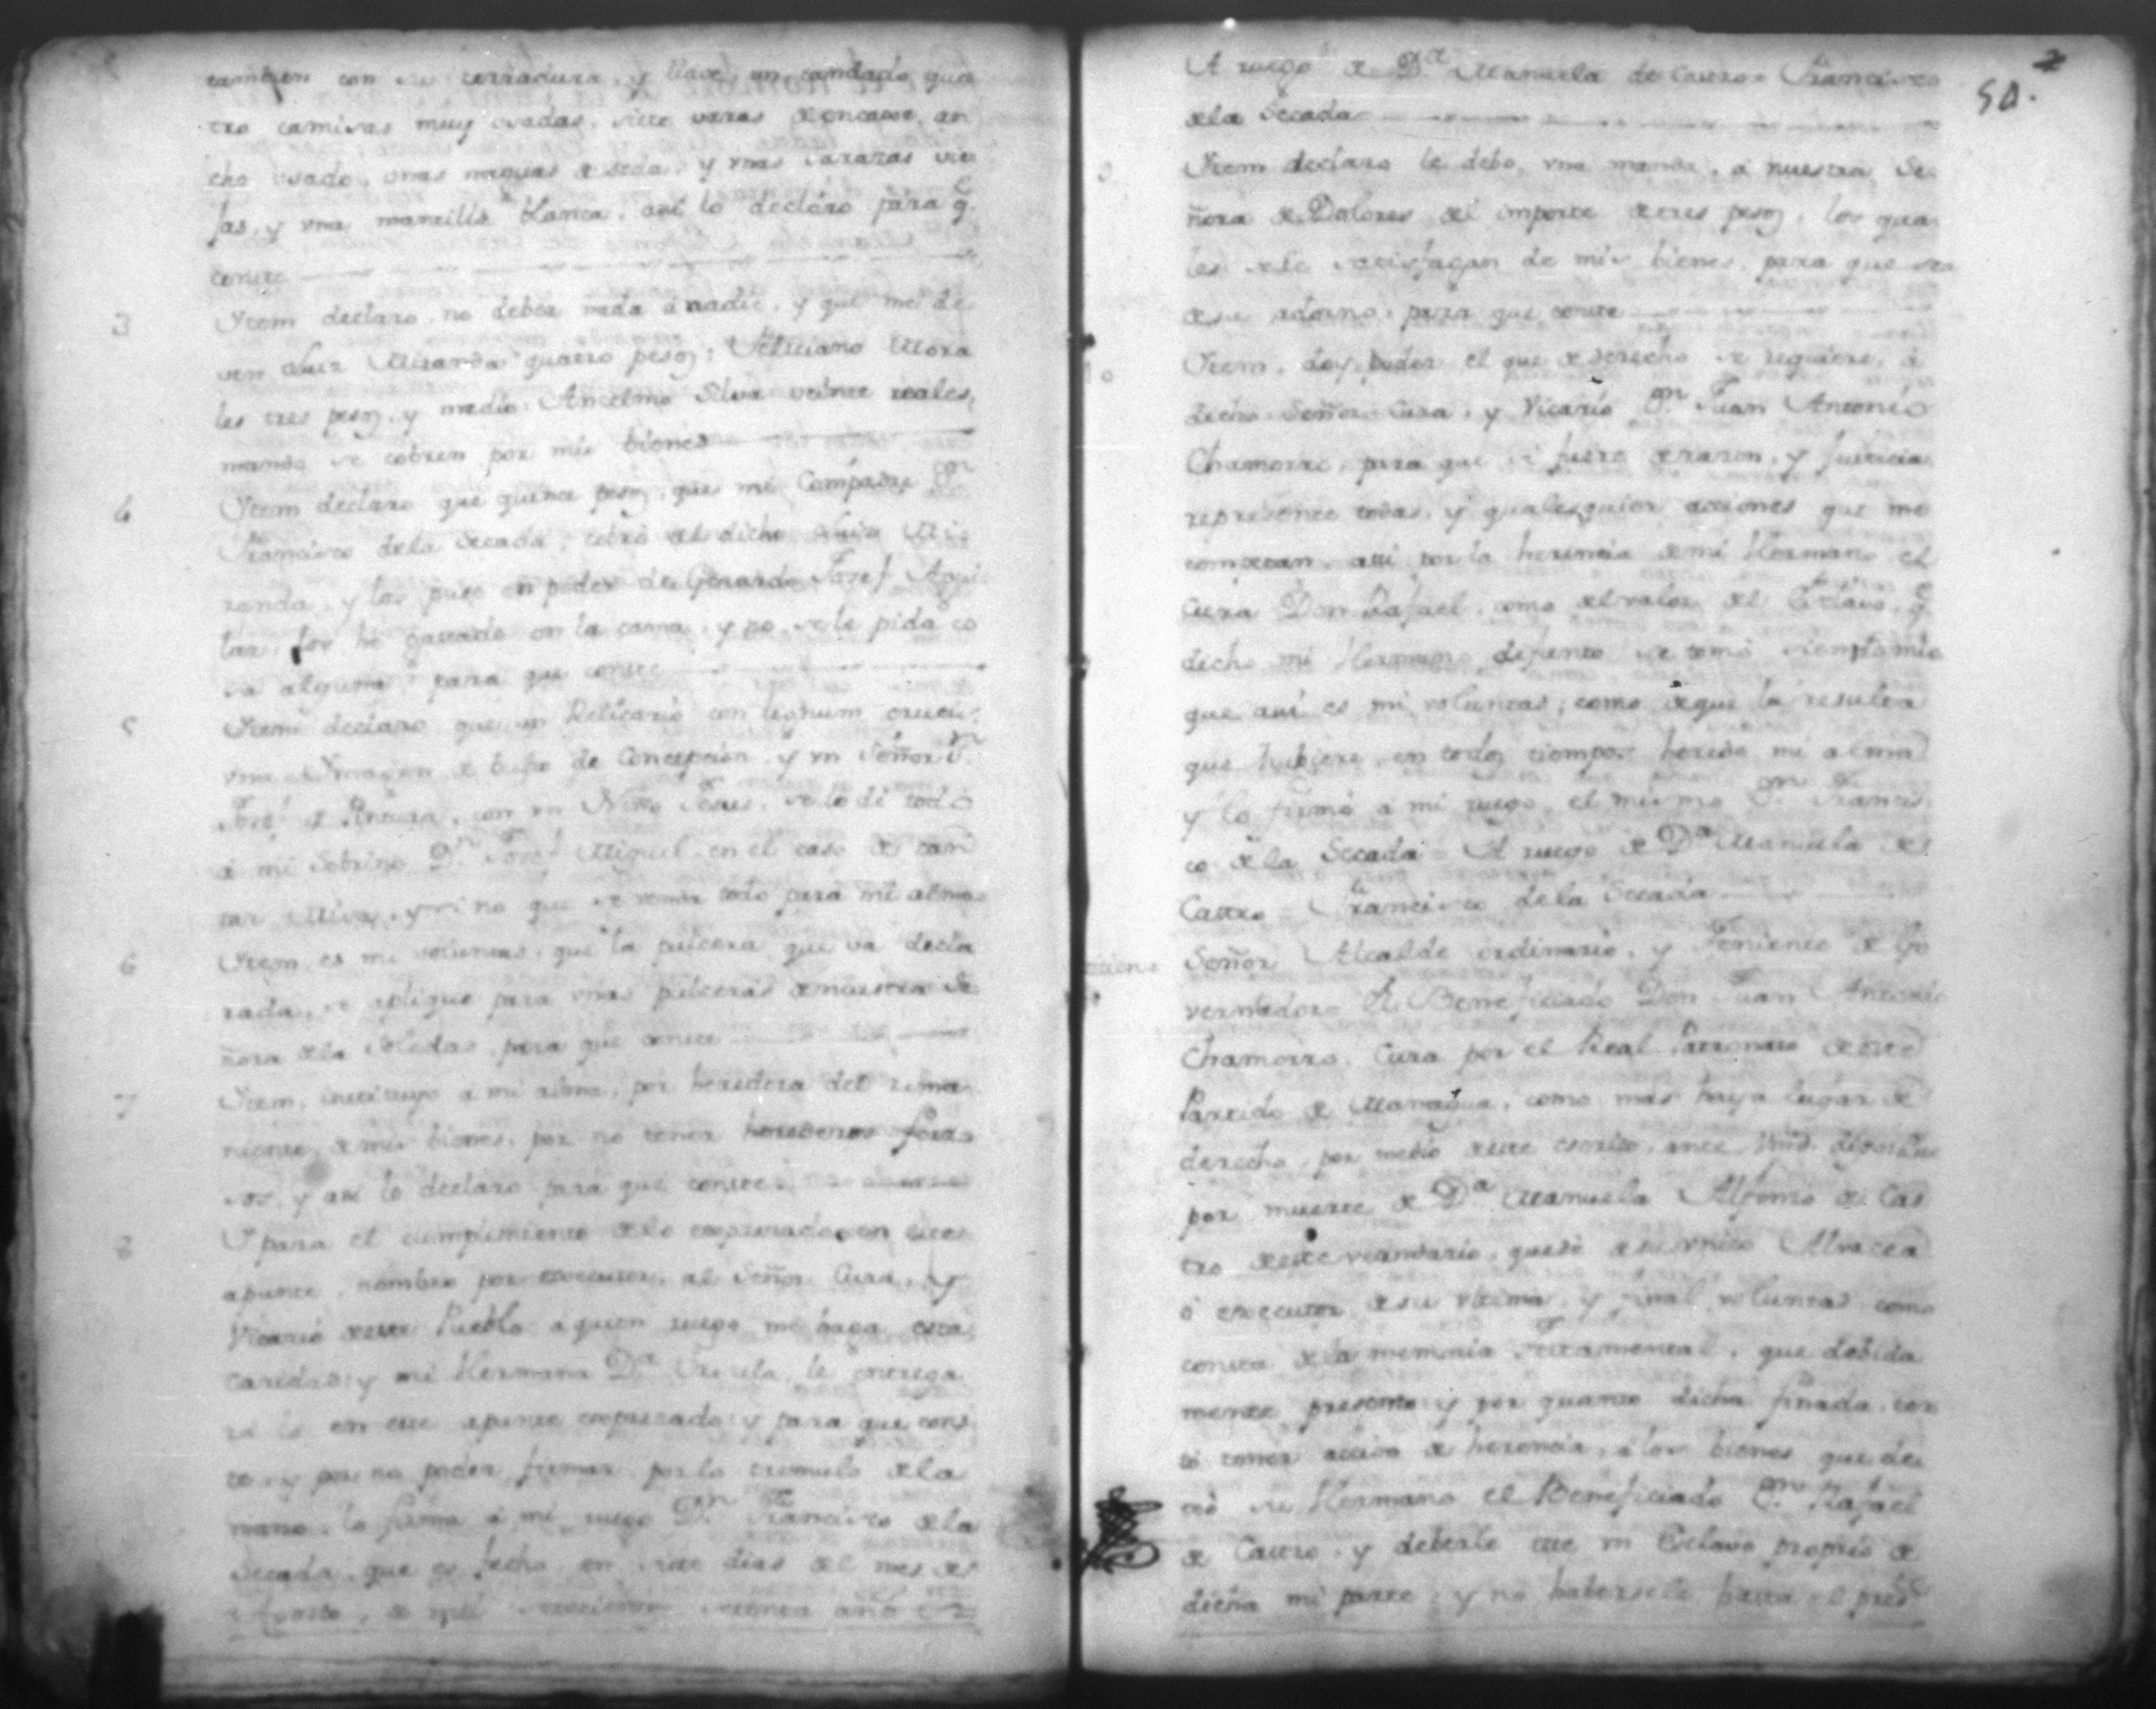 tambien con su cerradura, y llave, un candado, qua
tro camisas muy usadas, siete varas de encaxe an
cho usado, unas naguas de seda, y unas sarazas vie
jas, y una mantilla blanca, asi lo declaro para q.e
conste
3 Ytem declaro no deber nada á nadie, y que me de
ven Luis Miranda quatro pesos; Feliciano Mora
les tres pesos, y medio Anselmo Silva veinte reales,
mando se cobren por mis bienes
4 Ytem declaro que quince pesos, que mi Compadre Dn
Francisco dela Secada, cobró del dicho Luis Mi
randa, y los puso en poder de Gerardo Josef Agui
lar, los hé gastado en la cama, y no se le pida co
sa alguna para que conste
5 Ytem declaro que un Relicario con lignum crucis,
una Ymagen de bulto de Concepcion, y un Señor Sn
Josef de Pintura, con un Niño Jesus, se lo dí todo
á mi Sobrino Dn Josef Miguel en el caso de can
tar Misa, y si no que se venda todo para mi alma
6 Ytem, es mi voluntad, que la pulcera que va decla
rada, se aplique para unas pulceras de nuestra Se
ñora dela Soledad, para que conste
7 Ytem, instituyo a mi alma, por heredera del rema
niente de mis bienes, por no tener herederos forzo
sos, y asi lo declaro para que conste
8 Y para el cumplimiento delo expresado en este
apunte, nombro por executor, al Señor Cura, y
Vicario deeste Pueblo a quien ruego me haga esta
caridad, y mi Hermana Da le entrega
rá lo en este apunte expresado y para que cons
te, y por no poder firmar, por lo tremulo dela
mano, lo firma á mi ruego Dn Francisco dela
Secada, que es fecho en siete dias del mes de
Agosto, de mil setecientos setenta años
2
50.
A ruego de Da Manuela de Castro = Francisco
dela Secada
9 Ytem declaro le debo una manda, á nuestra Se
ñora de Dolores del importe de tres pesos, los qua
les se le satisfagan de mis bienes, para que sea
desu adorno, para que conste
10 Ytem, doy poder el que de derecho se requiere, á
dicho Señor Cura, y Vicario Dn Juan Antonio
Chamorro, para que si fuere de razon, y Justicia
represente todas, y qualesquier acciones que me
competan, asi por la herencia de mi Hermano el
Cura Don Rafael, como del valor del Esclavo, q.e
dicho mi Hermano difunto se tomó siendo mio
que asi es mi voluntad; como deque la resulta
que hubiere en todos tiempos herede mi alma
y lo firmó á mi ruego, el mismo Dn Francis
co dela Secada = A ruego de Da Manuela de
Castro = Francisco dela Secada
Señor Alcalde ordinario, y Teniente de Go
vernador = El Beneficiado Don Juan Antonio
Chamorro, Cura por el Real Patronato deeste
Partido de Managua, como mas haya lugar de
derecho, por medio deeste escrito, ante Vmd. digo: Que
por muerte de Da Manuela Alfonso de Cas
tro deeste vecindario, quedé desu unico Alvacea
ó executor desu ultima, y final voluntad como
consta dela memoria Testamental, que debida
mente presento y por quanto dicha finada
tener accion de herencia, á los bienes que de
xó su Hermano el Beneficiado Dn Rafael
de Castro, y deberle este un Esclavo proprio de
dicha mi parte, y no habersele hasta el pres.te